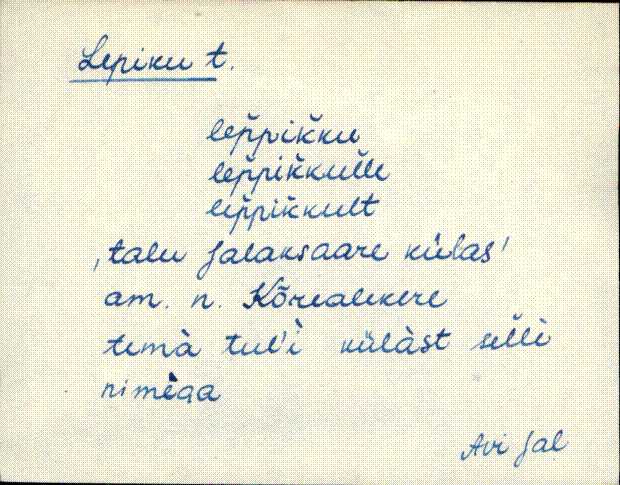 Lepiku t.
lep̆pik̆ku
lep̆pik̆kul̆le
lep̆pik̆kult
'talu Jalaksaare külas'
am. n. Kõrealekere
temà tul'ì külàst sel̆lè
nimègà
Avi Jal